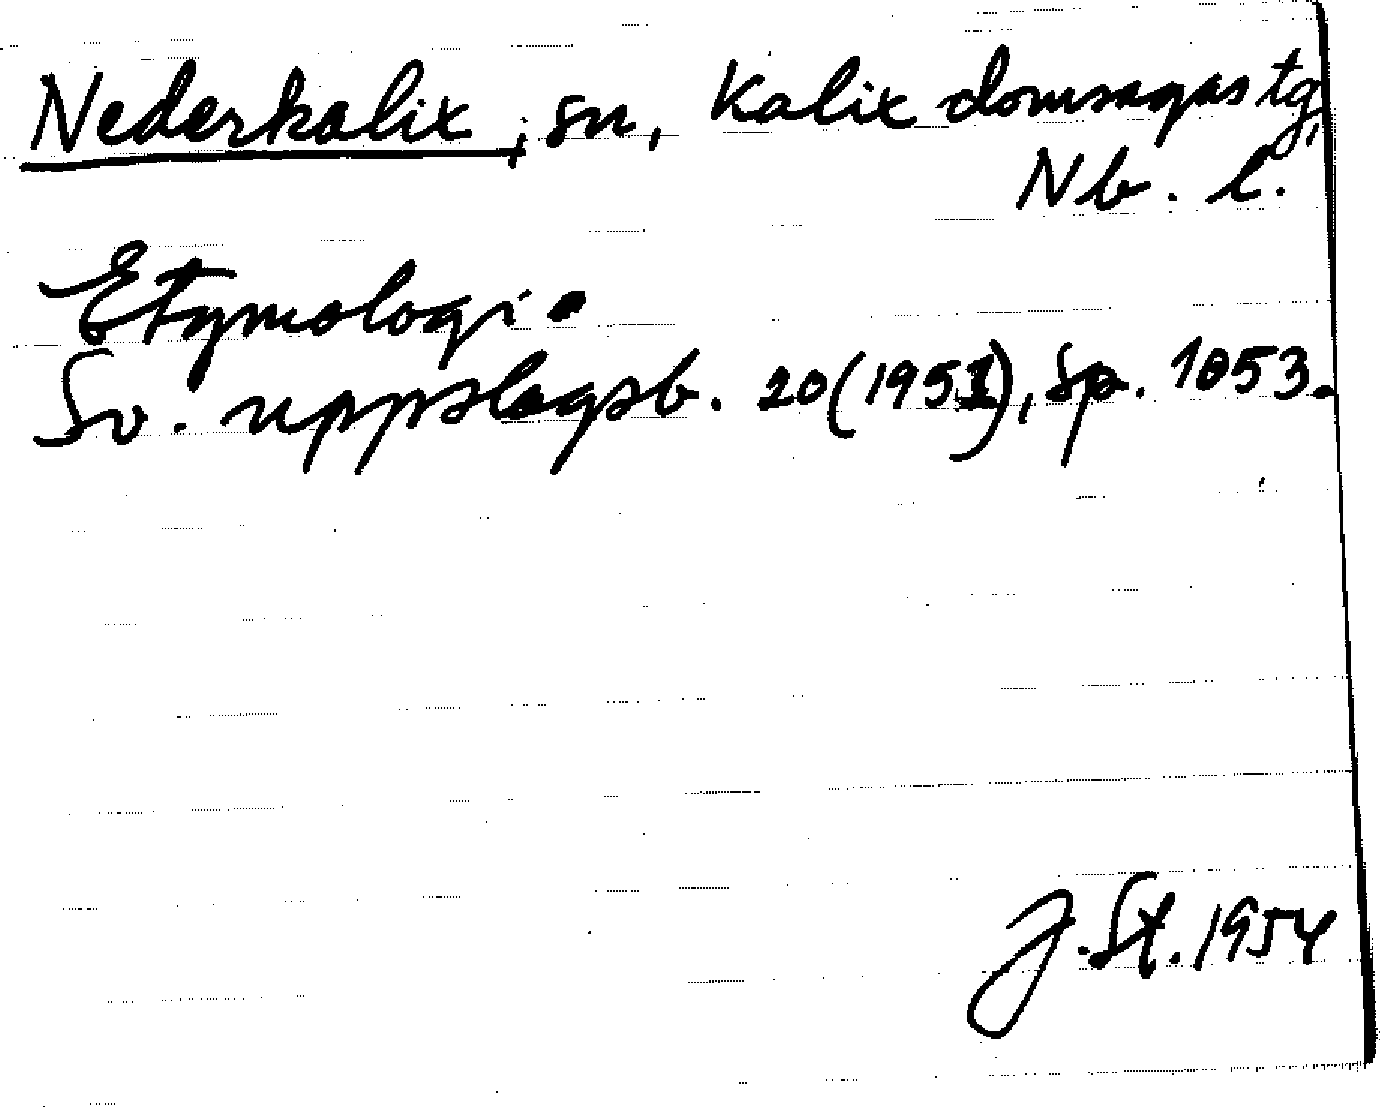 Nederkalix, sn, Kalix domsagas tg,
Nb. l.
Etymologi.
Sv. uppslagsb. 20 (1951), sp. 1053.
J. St. 1954